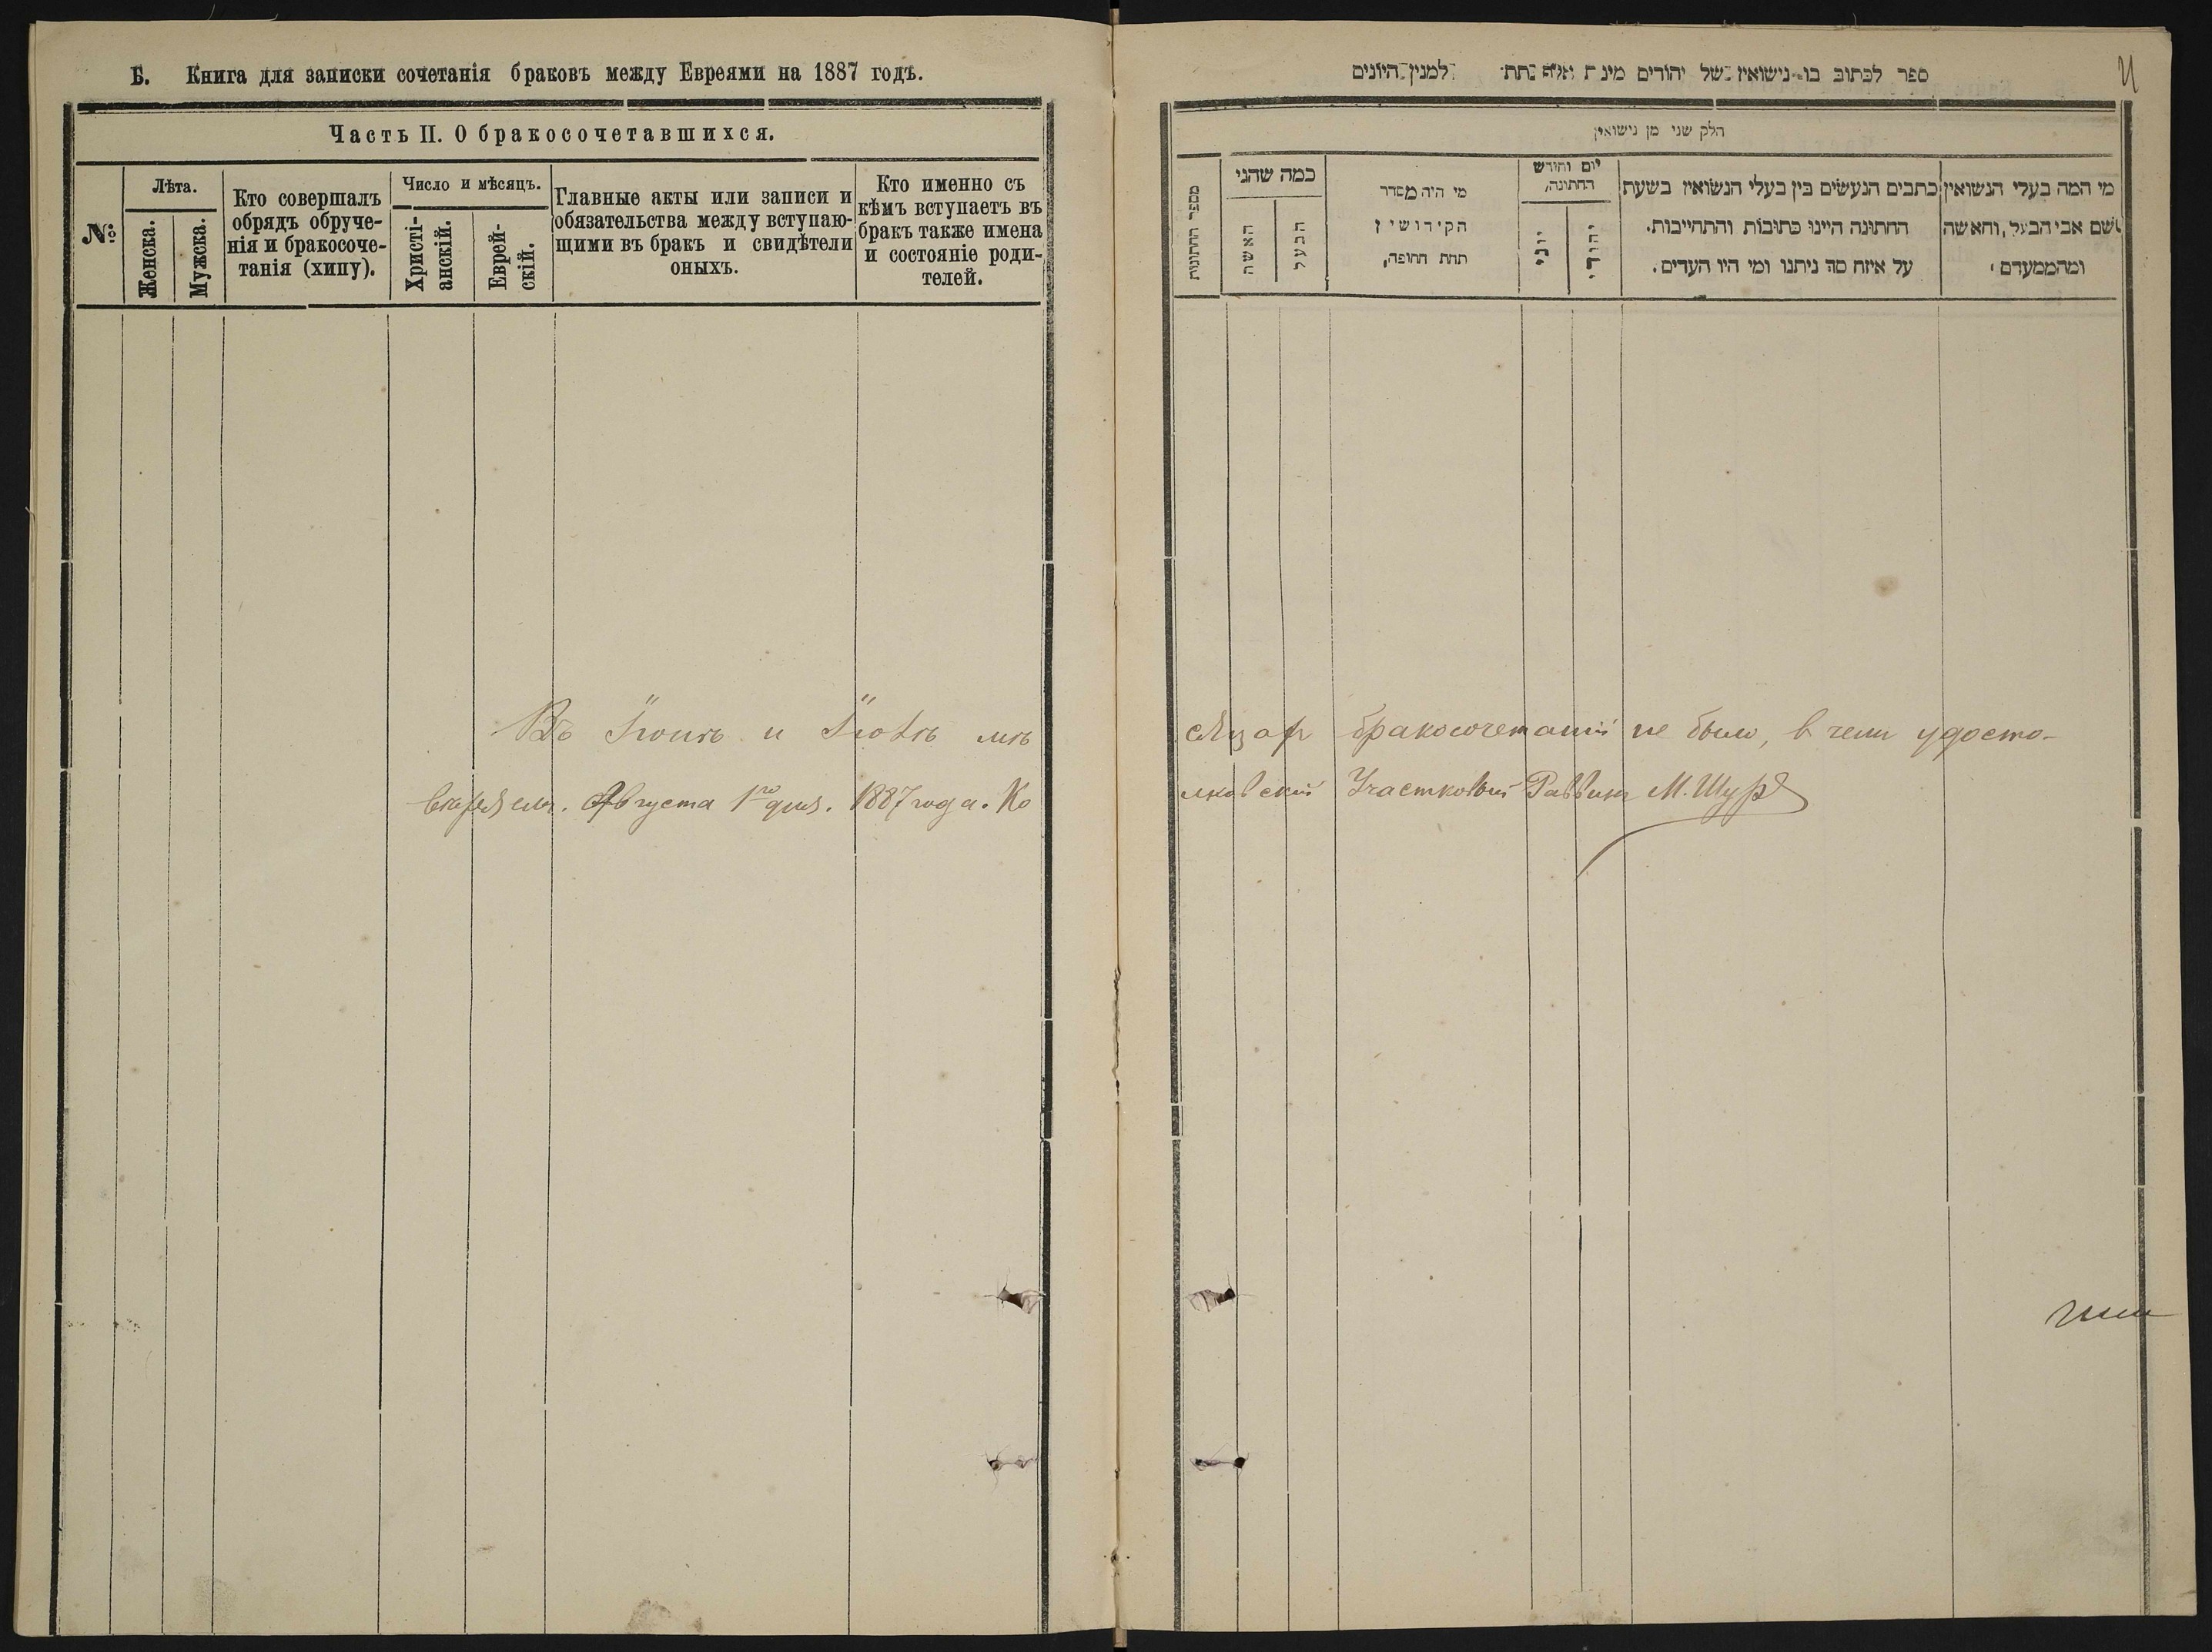 Б. Книга для записки сочетанія браковъ между Евреями на 1887 годъ.
Часть II. О бракосочетавшихся.
№
Лѣта.
Женска.
Мужска.
Кто совершалъ
обрядъ обруче-
нія и бракосоче-
танія (хипу).
Число и мѣсяцъ.
Христі-
анскій.
Еврей-
скій.
Главные акты или записи и
обязательства между вступаю-
щими въ бракъ и свидѣтели
оныхъ.
Кто именно съ
кѣмъ вступаетъ въ
бракъ также имена
и состояніе роди-
телей.
ספר לכתוב בו נישואין של יהודים למנין היונים
חלק שני מן נישואין
מספר החתונות
כמה שהני
האשה
הבעל
מי היה מסדר
הקידושין
תחת החופה,
יום וחודש
החתונה,
יוני
יהודי
כתבים הנעשים בין בעלי הנשואין בשעת
החתונה היינו כתובות והתחייבות.
על איזח סך ניתנו ומי היו העדים.
מי המה בעלי הנשואין
שם אבי הבעל, והאשה
ומהממעדם
Въ Іюнѣ и Іюлѣ мѣ сяцах бракосочетаній не было, в чем удосто-
веряем. Августа 1го дня. 1887 года. Участковый Раввин М. Шур